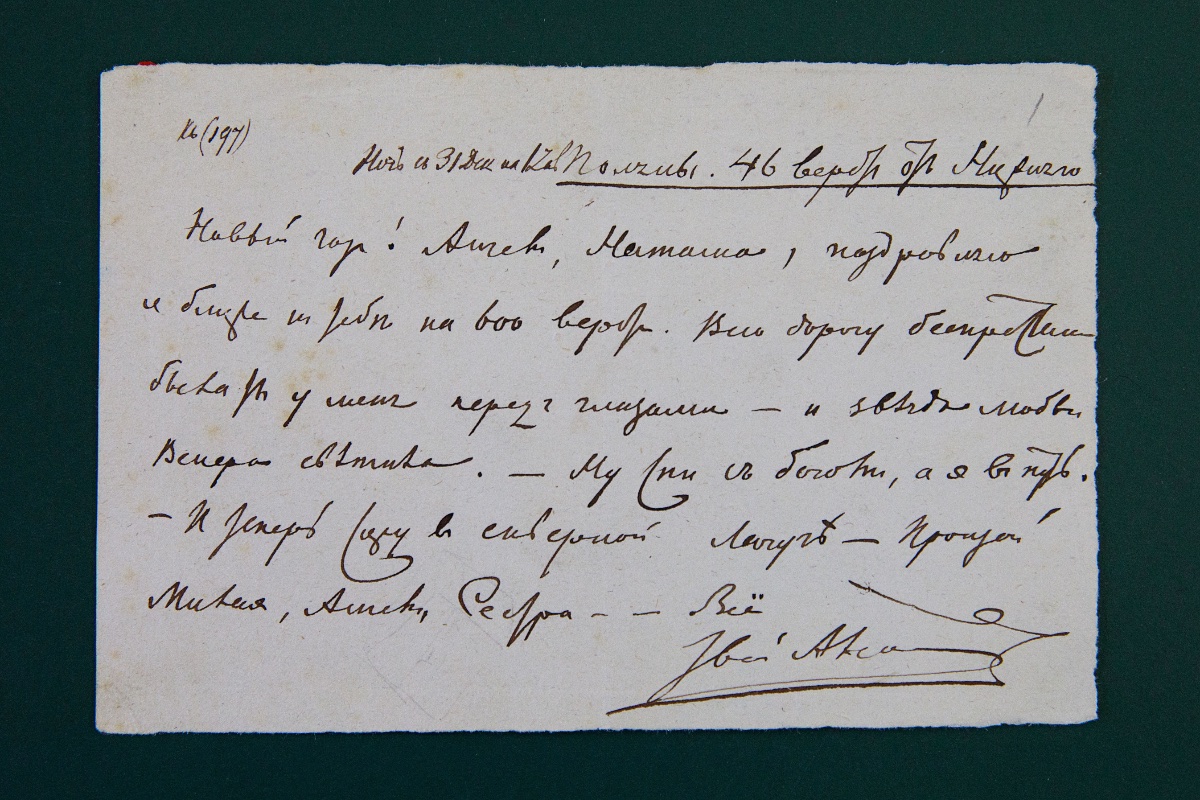 Къ (197)
Ночь съ 31 Дек на 1 Янв Полчны. 46 верстъ отъ Нижняго
Новый годъ! Ангелъ, Наташа, поздравляю
я ближе къ тебѣ на 600 верстъ. Всю дорогу беспрестанно
была ты у меня передъ глазами — и звѣзда любви
Венера свѣтила. — Ну спи съ богомъ, а я въ путь.
— И теперь сижу въ скверной лачугѣ — Прощай
Милая, Ангелъ, Сестра — — Всё
Твой Алекса